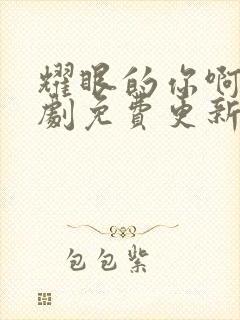 耀眼的你啊
劇免費更新
包包紫